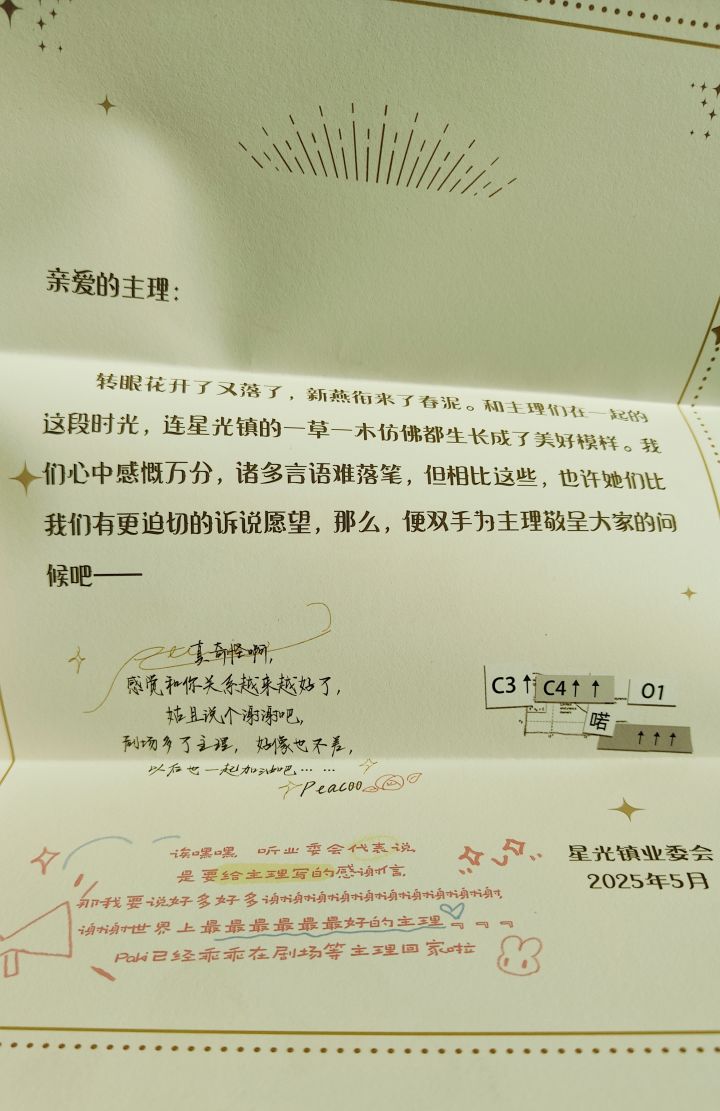 亲爱的主理：
转眼花开了又落了，新燕衔来了春泥。和主理们在一起的
这段时光，连星光镇的一草一木仿佛都生长成了美好模样。我
们心中感慨万分，诸多言语难落笔，但相比这些，也许她们比
我们有更迫切的诉说愿望，那么，便双手为主理敬呈大家的问
候吧——
真奇怪啊，
感觉和你关系越来越好了，
姑且说个谢谢吧，
剧场多了主理，好像也不差，
以后也一起加油吧……
Peacoo
C3↑ C4↑↑ O1
喏
↑↑↑
诶嘿嘿 听业委会代表说
是要给主理写的感谢信
那我要说好多好多谢谢谢谢谢谢谢谢谢谢谢
谢谢世界上最最最最最最好的主理
Paki已经乖乖在剧场等主理回家啦
星光镇业委会
2025年5月